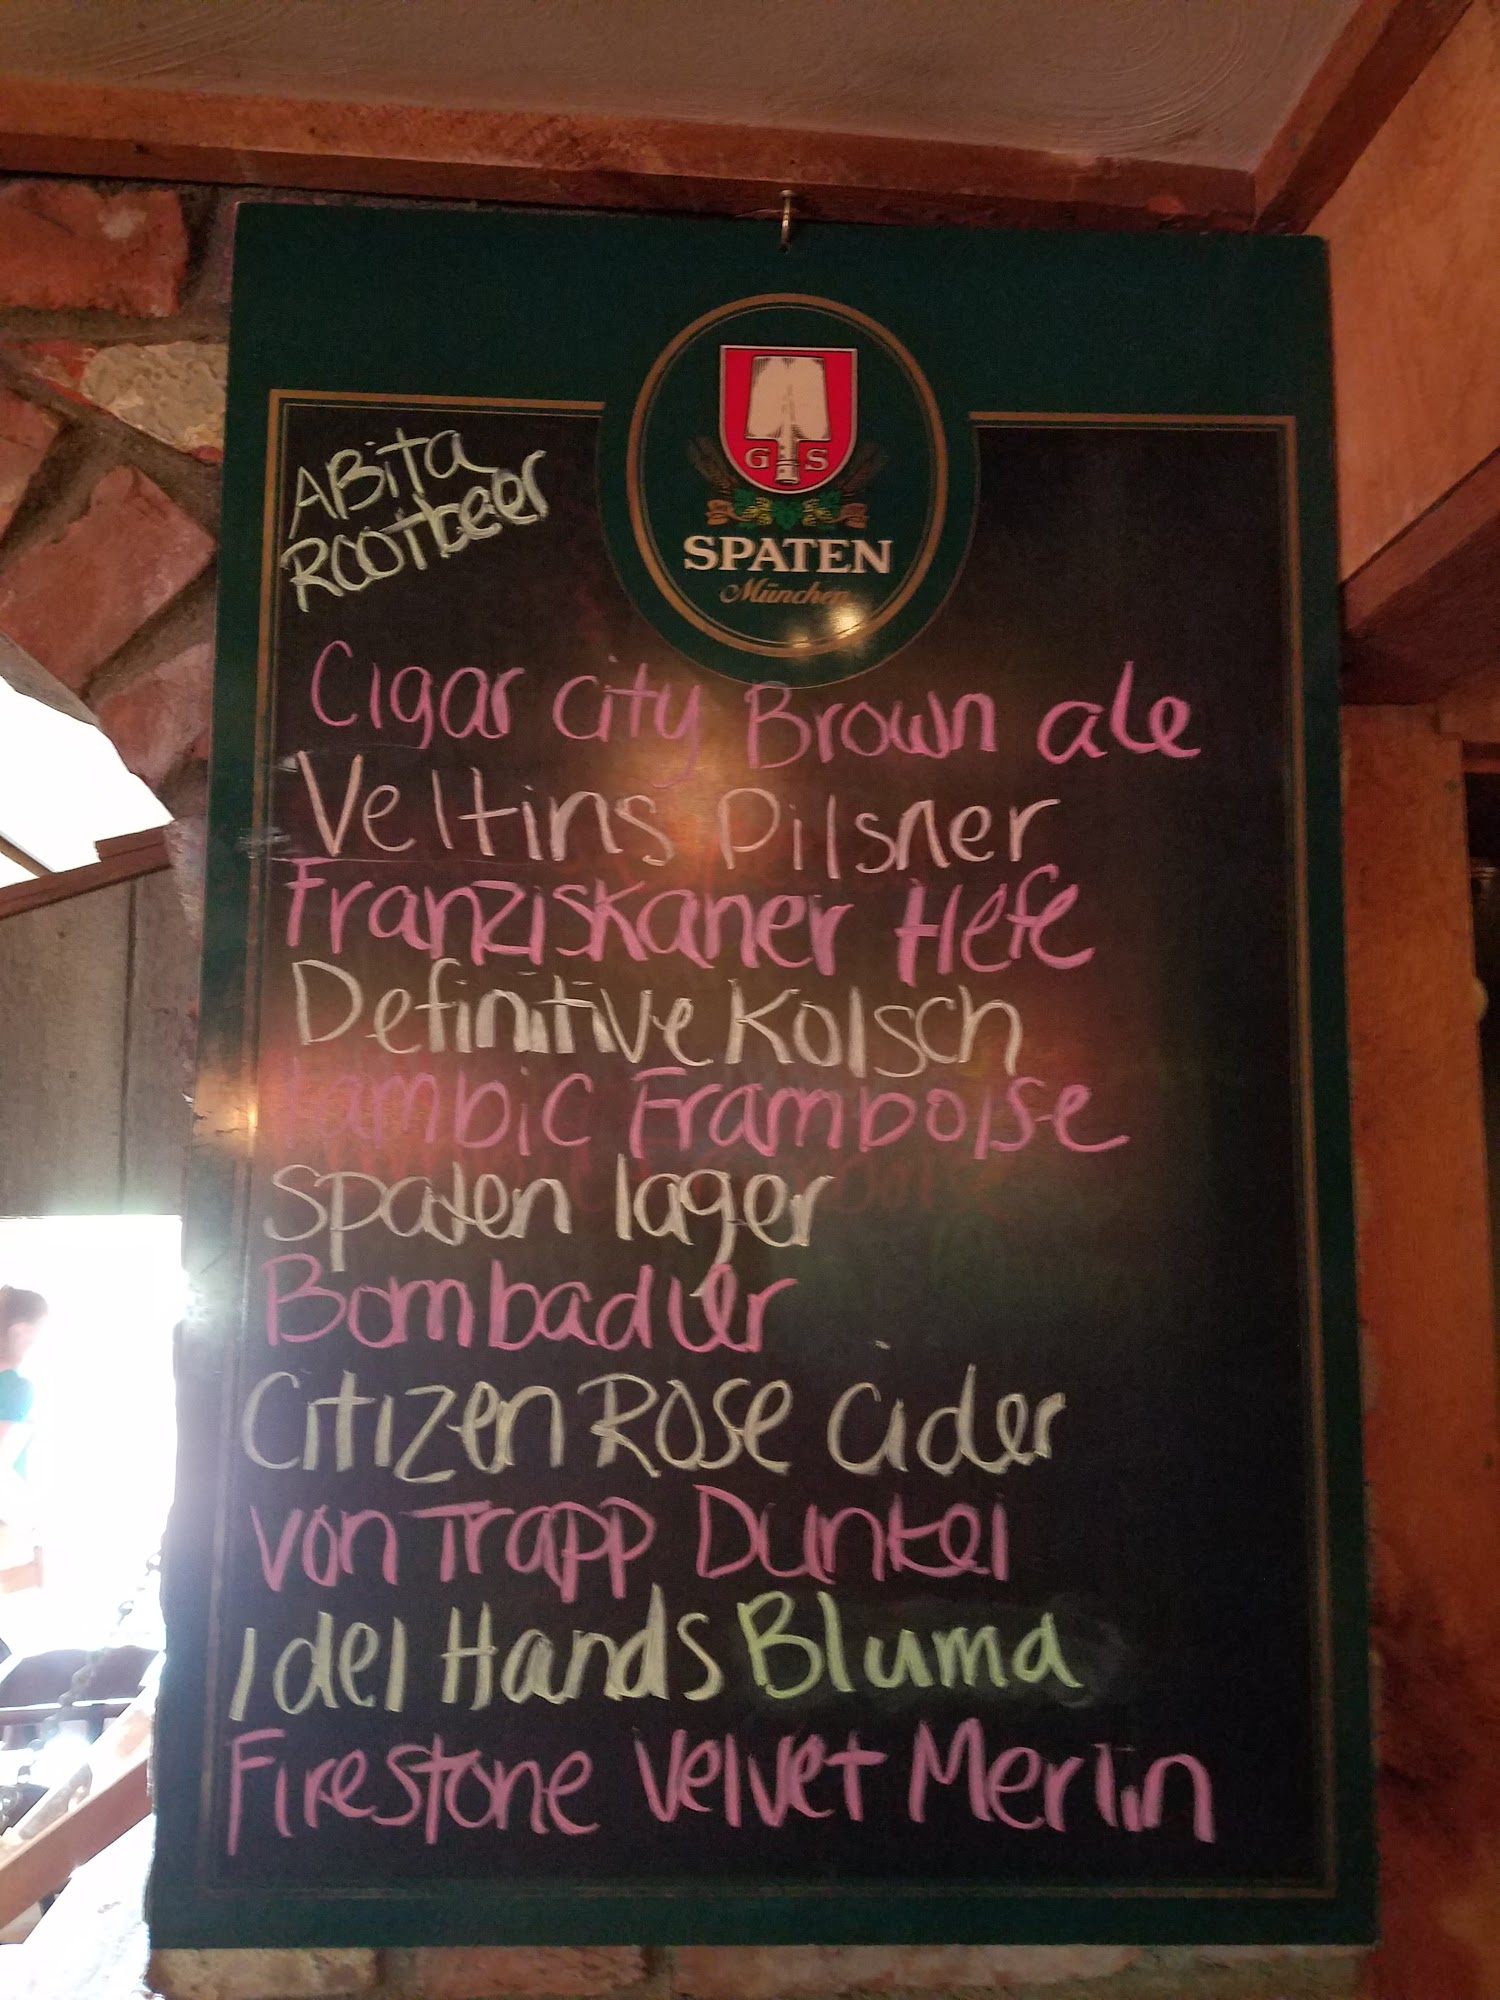 G S
SPATEN
München
ABita
ROOTbeer
Cigar city Brown ale
Veltins Pilsner
Franziskaner Hefe
Definitive Kolsch
Lambic Framboise
Spaten lager
Bombadier
Citizen Rose Cider
von Trapp Dunkel
Idel Hands Bluma
Firestone Velvet Merlin